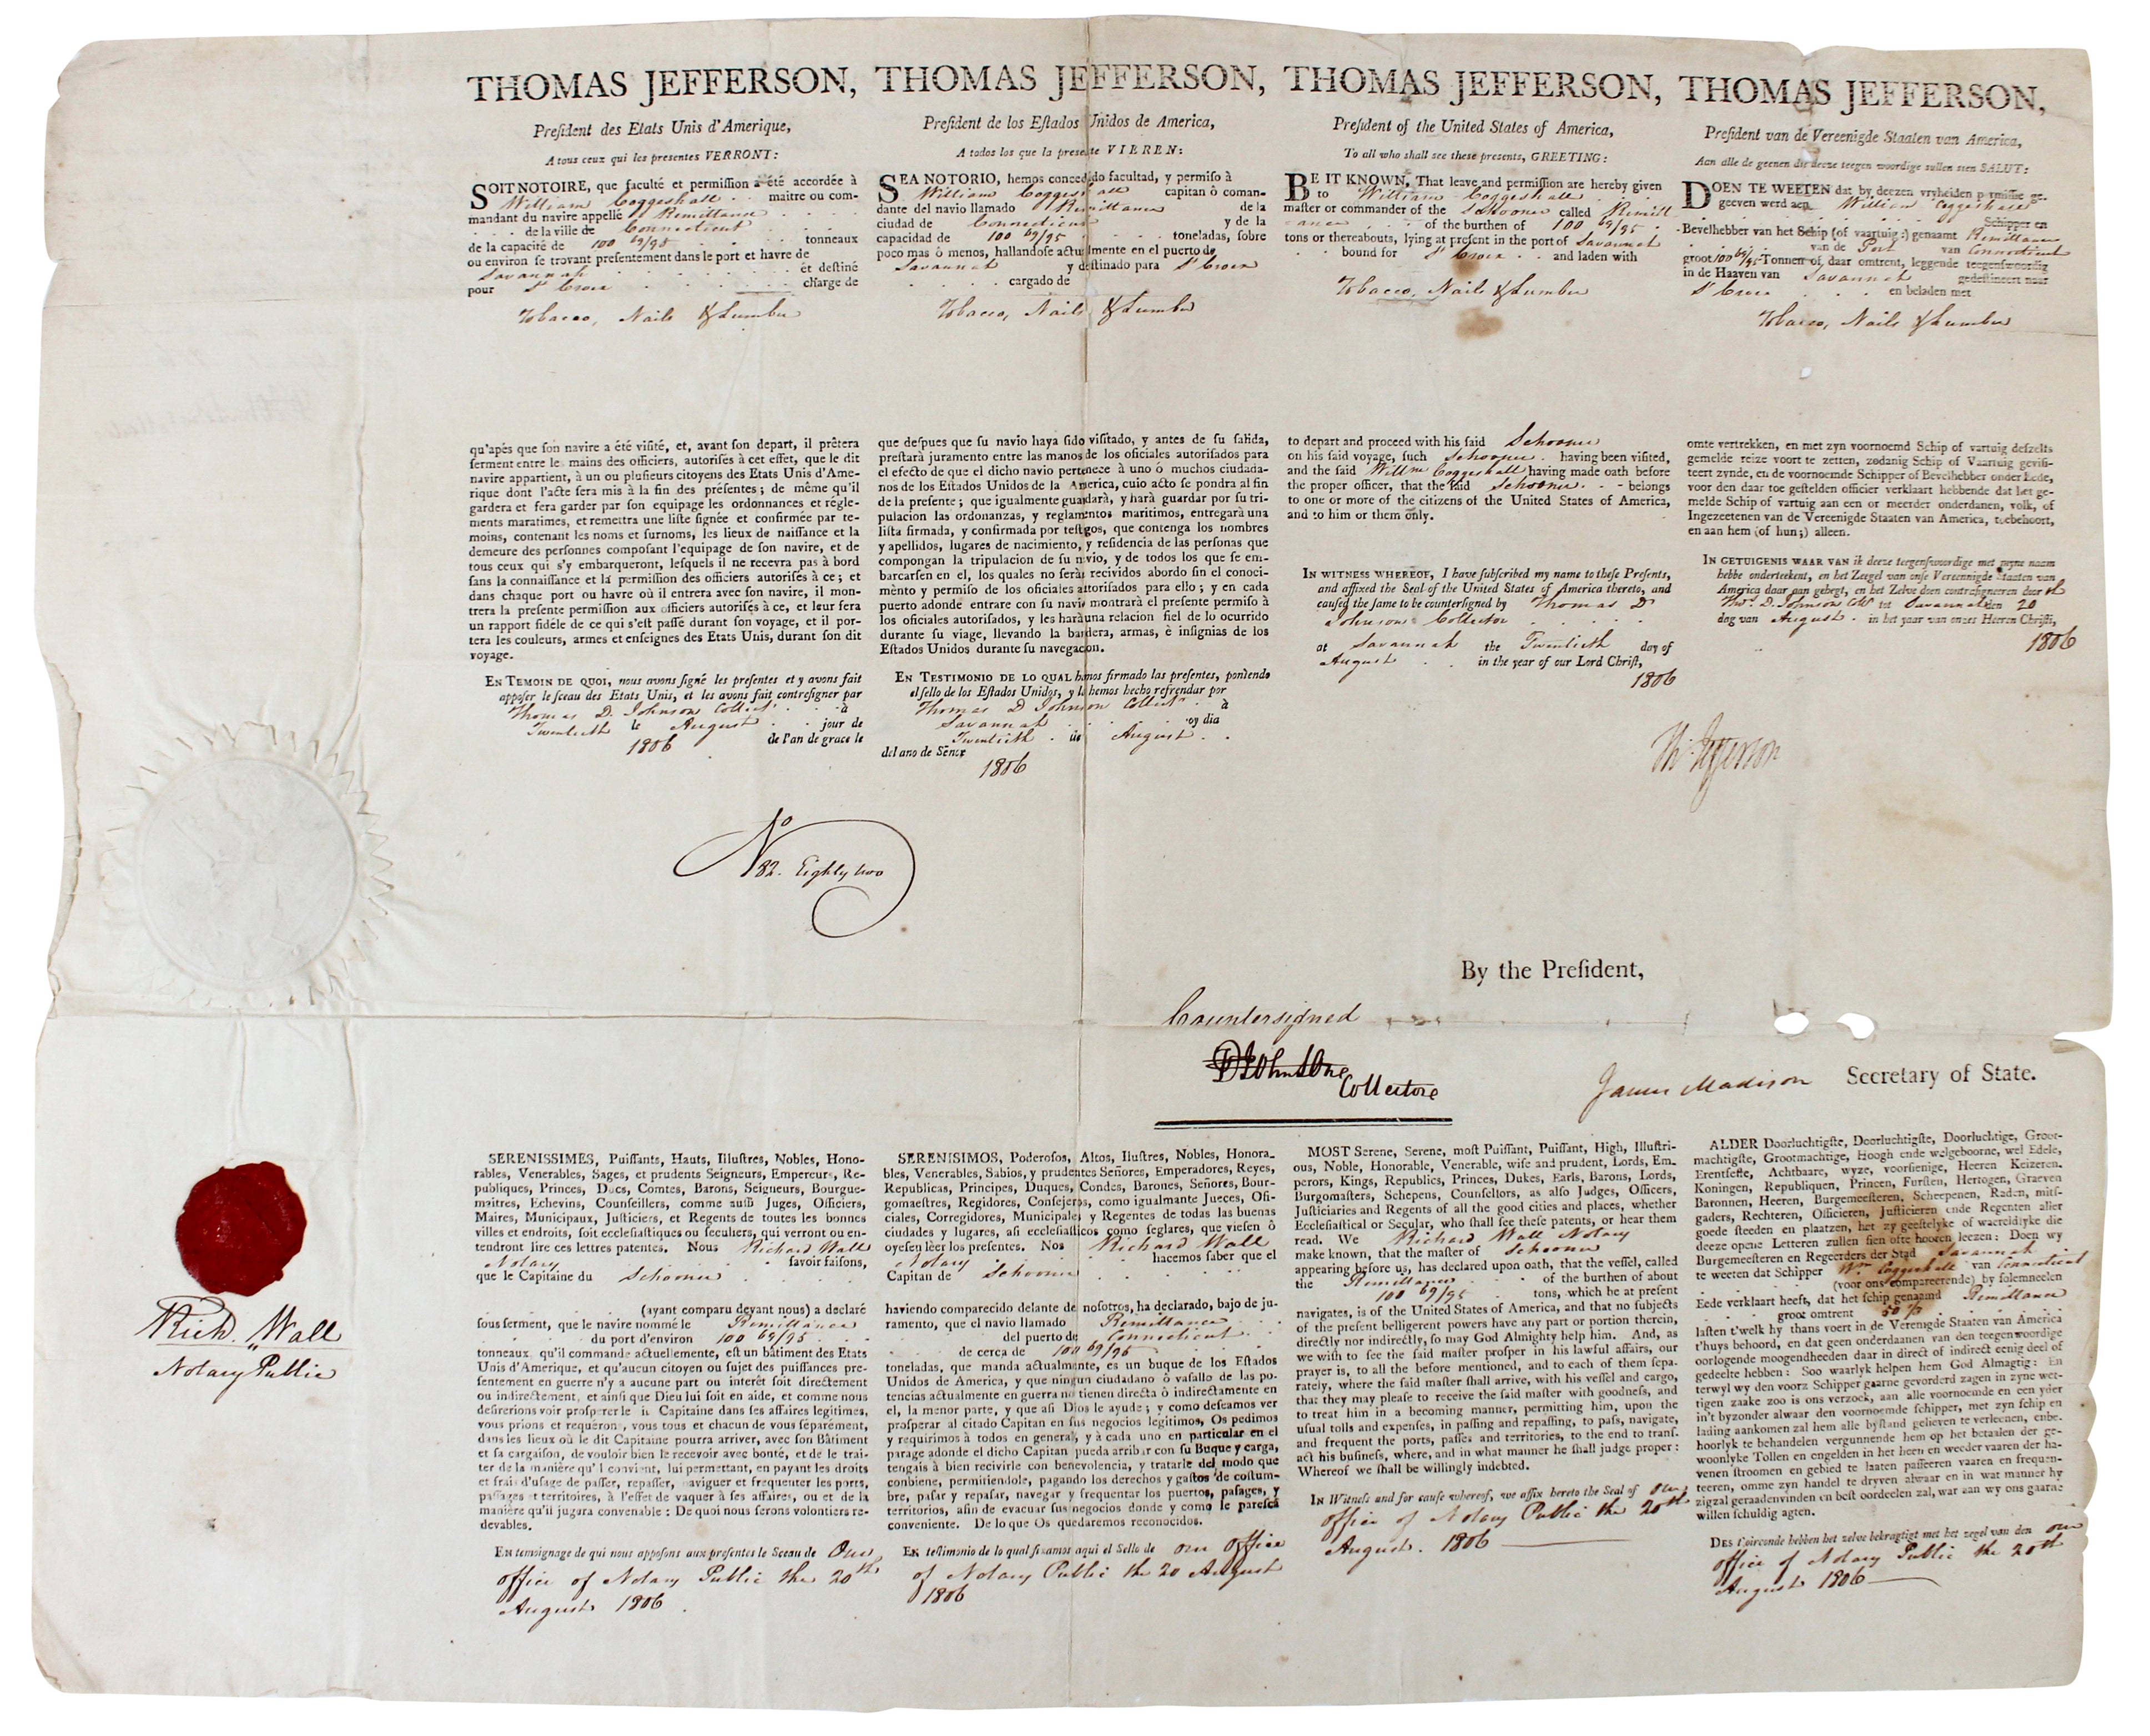 THOMAS JEFFERSON,
President des Etats Unis d'Amerique,
A tous ceux qui les presentes VERRONT:
SOIT NOTOIRE, que faculté et permission a été accordée à
William Coggeshall maitre ou com-
mandant du navire appellé Remittance
de la ville de Connecticut
de la capacité de 100 69/95 tonneaux
ou environ se trovant presentement dans le port et havre de
Savannah et destiné
pour St Croix charge de
Tobacco, Nails & Lumber
qu'apés que son navire a été visité, et, avant son depart, il prêtera
serment entre les mains des officiers, autorisés à cet effet, que le dit
navire appartient, à un ou plusieurs citoyens des Etats Unis d'Ame-
rique dont l'acte sera mis à la fin des présentes; de même qu'il
gardera et fera garder par son equipage les ordonnances et régle-
ments maratimes, et remettra une liste signée et confirmée par te-
moins, contenant les noms et surnoms, les lieux de naissance et la
demeure des personnes composant l'equipage de son navire, et de
tous ceux qui s'y embarqueront, lesquels il ne recevra pas à bord
sans la connaissance et la permission des officiers autorisés à ce; et
dans chaque port ou havre où il entrera avec son navire, il mon-
trera la presente permission aux officiers autorisés à ce, et leur fera
un rapport fidéle de ce qui s'est passé durant son voyage, et il por-
tera les couleurs, armes et enseignes des Etats Unis, durant son dit
voyage.
EN TEMOIN DE QUOI, nous avons signé les presentes et y avons fait
apposer le sceau des Etats Unis, et les avons fait contresigner par
Thomas D. Johnson Collectr à
Twentieth le August jour de
1806 de l'an de grace le
THOMAS JEFFERSON,
President de los Estados Unidos de America,
A todos los que la presente VIEREN:
SEA NOTORIO, hemos concedido facultad, y permiso à
William Coggeshall capitan ò coman-
dante del navio llamado Remittance de la
ciudad de Connecticut y de la
capacidad de 100 69/95 toneladas, sobre
poco mas ò menos, hallandose actualmente en el puerto de
Savannah y destinado para St Croix
cargado de
Tobacco, Nails & Lumber
que despues que su navio haya sido visitado, y antes de su salida,
prestará juramento entre las manos de los oficiales autorisados para
el efecto de que el dicho navio pertenece à uno ó muchos ciudada-
nos de los Estados Unidos de la America, cuio acto se pondra al fin
de la presente; que igualmente guardarà, y harà guardar por su tri-
pulacion las ordonanzas, y reglamentos maritimos, entregarà una
lista firmada, y confirmada por testigos, que contenga los nombres
y apellidos, lugares de nacimiento, y residencia de las personas que
compongan la tripulacion de su navio, y de todos los que se em-
barcarsen en el, los quales no seràn recividos abordo sin el conoci-
mènto y permiso de los oficiales autorisados para ello; y en cada
puerto adonde entrare con su navio montrarà el presente permiso à
los oficiales autorisados, y les harà una relacion fiel de lo ocurrido
durante su viage, llevando la bandera, armas, è insignias de los
Estados Unidos durante su navegacon.
EN TESTIMONIO DE LO QUAL hemos firmado las presentes, poniendo
el sello de los Estados Unidos, y la hemos hecho refrendar por
Thomas D Johnson Collectr à
Savannah oy dia
Twentieth de August
del ano de Senor
1806
THOMAS JEFFERSON,
President of the United States of America,
To all who shall see these presents, GREETING:
BE IT KNOWN, That leave and permission are hereby given
to William Coggeshall
master or commander of the Schooner called Remitt-
ance of the burthen of 100 69/95
tons or thereabouts, lying at present in the port of Savannah
bound for St Croix and laden with
Tobacco, Nails & Lumber
to depart and proceed with his said Schooner
on his said voyage, such Schooner having been visited,
and the said Willm Coggeshall having made oath before
the proper officer, that the said Schooner belongs
to one or more of the citizens of the United States of America,
and to him or them only.
IN WITNESS WHEREOF, I have subscribed my name to these Presents,
and affixed the Seal of the United States of America thereto, and
caused the same to be countersigned by Thomas D
Johnson Collector
at Savannah the Twentieth day of
August in the year of our Lord Christ,
1806
THOMAS JEFFERSON,
President van de Vereenigde Staaten van America,
Aan alle de geenen die deeze teegen woordige sullen sien SALUT:
DOEN TE WEETEN dat by deezen vryheiden permissie ge-
geeven werd aen William Coggeshall
Schipper en
Bevelhebber van het Schip (of vaartuig:) genaamt Remittance
van de Port van Connecticut
groot 100 69/95 Tonnen of, daar omtrent, leggende teegenswoordig
in de Haaven van Savannah gedestineert naar
St Croix en beladen met
Tobacco, Nails & Lumber
omte vertrekken, en met zyn voornoemd Schip of vartuig deszelts
gemelde reize voort te zetten, zodanig Schip of Vaartuig gevisi-
teert zynde, en de voornoemde Schipper of Bevelhebber onder Eede,
voor den daar toe gestelden officier verklaart hebbende dat het ge-
melde Schip of vartuig aan een or meerder onderdanen, volk, of
Ingezeetenen van de Vereenigde Staaten van America, toebehoort,
en aan hem (of hun;) alleen.
IN GETUIGENIS WAAR VAN ik deeze teegenswoordige met myne naam
hebbe onderteekent, en het Zeegel van onse Vereennigde Staaten van
America daar aan gehegt, en het Zelve doen contrasigneren door
Thos. D. Johnson Collr tot Savannah den 20
dag van August in het jaar van onzes Heeren Christi,
1806
Th: Jefferson
No 82. Eighty two
By the President,
Countersigned
Collectore
James Madison Secretary of State.
Rich. Wall
Notary Public
SERENISSIMES, Puissants, Hauts, Illustres, Nobles, Hono-
rables, Venerables, Sages, et prudents Seigneurs, Empereurs, Re-
publiques, Princes, Ducs, Comtes, Barons, Seigneurs, Bourgue-
maitres, Echevins, Counseillers, comme aussi Juges, Officiers,
Maires, Municipaux, Justiciers, et Regents de toutes les bonnes
villes et endroits, soit ecclesiastiques ou seculiers, qui verront ou en-
tendront lire ces lettres patentes. Nous Richard Wall
Notary savoir faisons,
que le Capitaine du Schooner
(ayant comparu devant nous) a declaré
sous serment, que le navire nommé le Remittance
du port d'environ 100 69/95
tonneaux qu'il commande actuellemente, est un bâtiment des Etats
Unis d'Amerique, et qu'aucun citoyen ou sujet des puissances pre-
sentement en guerre n'y a aucune part ou interêt soit directement
ou indirectement, et ainsi que Dieu lui soit en aide, et comme nous
desirerions voir prosperer le Capitaine dans ses affaires legitimes,
vous prions et requérons, vous tous et chacun de vous séparément,
dans les lieux où le dit Capitaine pourra arriver, avec son Bâtiment
et sa cargaison, de vouloir bien le recevoir avec bonté, et de le trai-
ter de la manière qu'l convient, lui permettant, en payant les droits
et frais d'usage de passer, repasser, naviguer et frequenter les ports,
passages et territoires, à l'effet de vaquer à ses affaires, ou et de la
manière qu'il jugara convenable: De quoi nous serons volontiers re-
devables.
En temoignage de qui nous apposons aux presentes le Sceau de Our
office of Notary Public the 20th
August 1806
SERENISIMOS, Poderosos, Altos, Ilustres, Nobles, Honora-
bles, Venerables, Sabios, y prudentes Señores, Emperadores, Reyes,
Republicas, Principes, Duques, Condes, Barones, Señores, Bour-
gomaestres, Regidores, Consejeros, como igualmante Jueces, Ofi-
ciales, Corregidores, Municipales y Regentes de todas las buenas
ciudades y lugares, asi eclesiasticos como seglares, que viesen ô
oyesen lèer los presentes. Nos Richard Wall
Notary hacemos saber que el
Capitan de Schooner
haviendo comparecido delante de nosotros, ha declarado, bajo de ju-
ramento, que el navio llamado Remittance
del puerto de Connecticut
de cerca de 100 69/95
toneladas, que manda actualmante, es un buque de los Estados
Unidos de America, y que ningun ciudadano ô vasallo de las po-
tencias actualmente en guerra no tienen directa ô indirectamente en
el, la menor parte, y que asi Dios le ayude; y como deseamos ver
prosperar al citado Capitan en sus negocios legitimos, Os pedimos
y requirimos à todos en general, y à cada uno en particular en el
parage adonde el dicho Capitan pueda arribar con su Buque y carga,
tengais à bien recivirle con benevolencia, y tratarle del modo que
conbiene, permitiendole, pagando los derechos y gastos de costum-
bre, pasar y repasar, navegar y frequentar los puertos, pasages, y
territorios, asin de evacuar sus negocios donde y como le paresca
conveniente. De lo que Os quedaremos reconocidos.
En testimonio de lo qual fixamos aqui el Sello de our office
of Notary Public the 20 August
1806
MOST Serene, Serene, most Puissant, Puissant, High, Illustri-
ous, Noble, Honorable, Venerable, wise and prudent, Lords, Em-
perors, Kings, Republics, Princes, Dukes, Earls, Barons, Lords,
Burgomasters, Schepens, Counsellors, as also Judges, Officers,
Justiciaries and Regents of all the good cities and places, whether
Ecclesiastical or Secular, who shall see these patents, or hear them
read. We Richard Wall Notary
make known, that the master of Schooner
appearing before us, has declared upon oath, that the vessel, called
the Remittance of the burthen of about
100 69/95 tons, which he at present
navigates, is of the United States of America, and that no subjects
of the present belligerent powers have any part or portion therein,
directly nor indirectly, so may God Almighty help him. And, as
we wish to see the said master prosper in his lawful affairs, our
prayer is, to all the before mentioned, and to each of them sepa-
rately, where the said master shall arrive, with his vessel and cargo,
that they may please to receive the said master with goodness, and
to treat him in a becoming manner, permitting him, upon the
usual tolls and expenses, in passing and repassing, to pass, navigate,
and frequent the ports, passes and territories, to the end to trans-
act his business, where, and in what manner he shall judge proper:
Whereof we shall be willingly indebted.
IN Witness and for cause whereof, we affix hereto the Seal of our
office of Notary Public the 20th
August. 1806
ALDER Doorluchtigste, Doorluchtigste, Doorluchtige, Groot-
machtigste, Grootmachtige, Hoogh ende welgeboorne, wel Edele,
Erentfeste, Achtbaare, wyze, voorsienige, Heeren Keizeren.
Koningen, Republiquen, Princen, Fursten, Hertogen, Graeven
Baronnen, Heeren, Burgemeesteren, Scheepenen, Raden, mits-
gaders, Rechteren, Officieren, Justicieren ende Regenten aller
goede steeden en plaatzen, het zy geestelyke of waereldlyke die
deeze opene Letteren zullen sien ofte hooren leezen: Doen wy
Burgemeesteren en Regeerders der Stad Savannah
te weeten dat Schipper Wm Coggeshall van Connecticut
(voor ons compareerende) by solemneelen
Eede verklaart heeft, dat het schip genaamd Remittance
groot omtrent
lasten t'welk hy thans voert in de Verenigde Staaten van America
t'huys behoord, en dat geen onderdaanen van den teegenwoordige
oorlogende moogendheeden daar in direct of indirect eenig deel of
gedeelte hebben: Soo waarlyk helpen hem God Almagtig: En
terwyl wy den voorz Schipper gaarne gevorderd zagen in zyne wet-
tigen zaake zoo is ons verzoek, aan alle voornoemde en een yder
in't byzonder alwaar den voornoemde schipper, met zyn schip en
lading aankomen zal hem alle bystand gelieven te verleenen, enbe-
hoorlyk te behandelen vergunnende hem op het betaalen der ge-
woonlyke Tollen en engelden in het heen en weeder vaaren der ha-
venen stroomen en gebied te laaten passeeren vaaren en frequen-
teeren, omme zyn handel te dryven alwaar en in wat manner hy
zigzal geraadenvinden en best oordeelen zal, war aan wy ons gaarne
willen schuldig agten.
DES t'oirconde hebben het zelve bekragtigt met het zegel van den our
office of Notary Public the 20th
August 1806